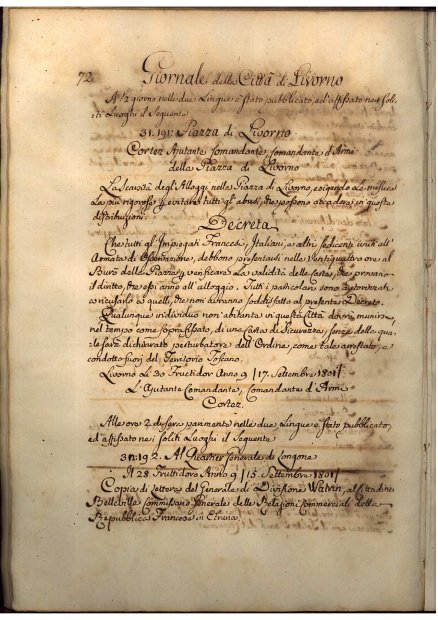 72 Giornale della Città di Livorno
A 1/2 giorno nelle due Lingue è stato pubblicato, ed affissato nei soli-
ti Luoghi il Seguente
31. 191: Piazza di Livorno
Cortez Ajutante Comandante, Comandante d'Armi
della Piazza di Livorno
La Scarsità degl'Alloggi nella Piazza di Livorno, esigendo delle misure
le più rigorose, p evitare tutti gl'abusi, che possono accadere in questa
distribuzione.
Decreta
Che tutti gl'Impiegati Francesi, Italiani, e altri sedicenti uniti all'
Armata di Osservazione, debbono presentarsi nelle ventiquattro ore al
Burò della Piazza p verificare la validità delle carte, che provano
il diritto, che essi anno all'alloggio. Tutti i particolari sono autorizzati
a ricusarlo a quelli, che non avranno soddisfatto al presente Decreto.
Qualunque individuo non abitante in questa Città dovrà munirsi,
nel tempo come sopra fissato, di una Carta di Sicurezza, senza della qua-
le sarà dichiarato perturbatore dell'Ordine, come tale arrestato, e
condotto fuori del Territorio Toscano.
Livorno li 30 Fruttidor Anno 9 /17. Settembre 1801/
L'Ajutante Comandante, Comandante d'Armi
Cortez.
Alle ore 2. di sera parimente nelle due Lingue è stato pubblicato,
ed affissato nei soliti Luoghi il Seguente
31: 192. Al Quartier Generale di Longone
A 28 Fruttidoro Anno 9 /15. Settembre 1801/
Copia di Lettera del Generale di Divisione Watrin, al Cittadino
Belleville Commissario Generale delle Relazioni Commerciali della
Repubblica Francese in Etruria